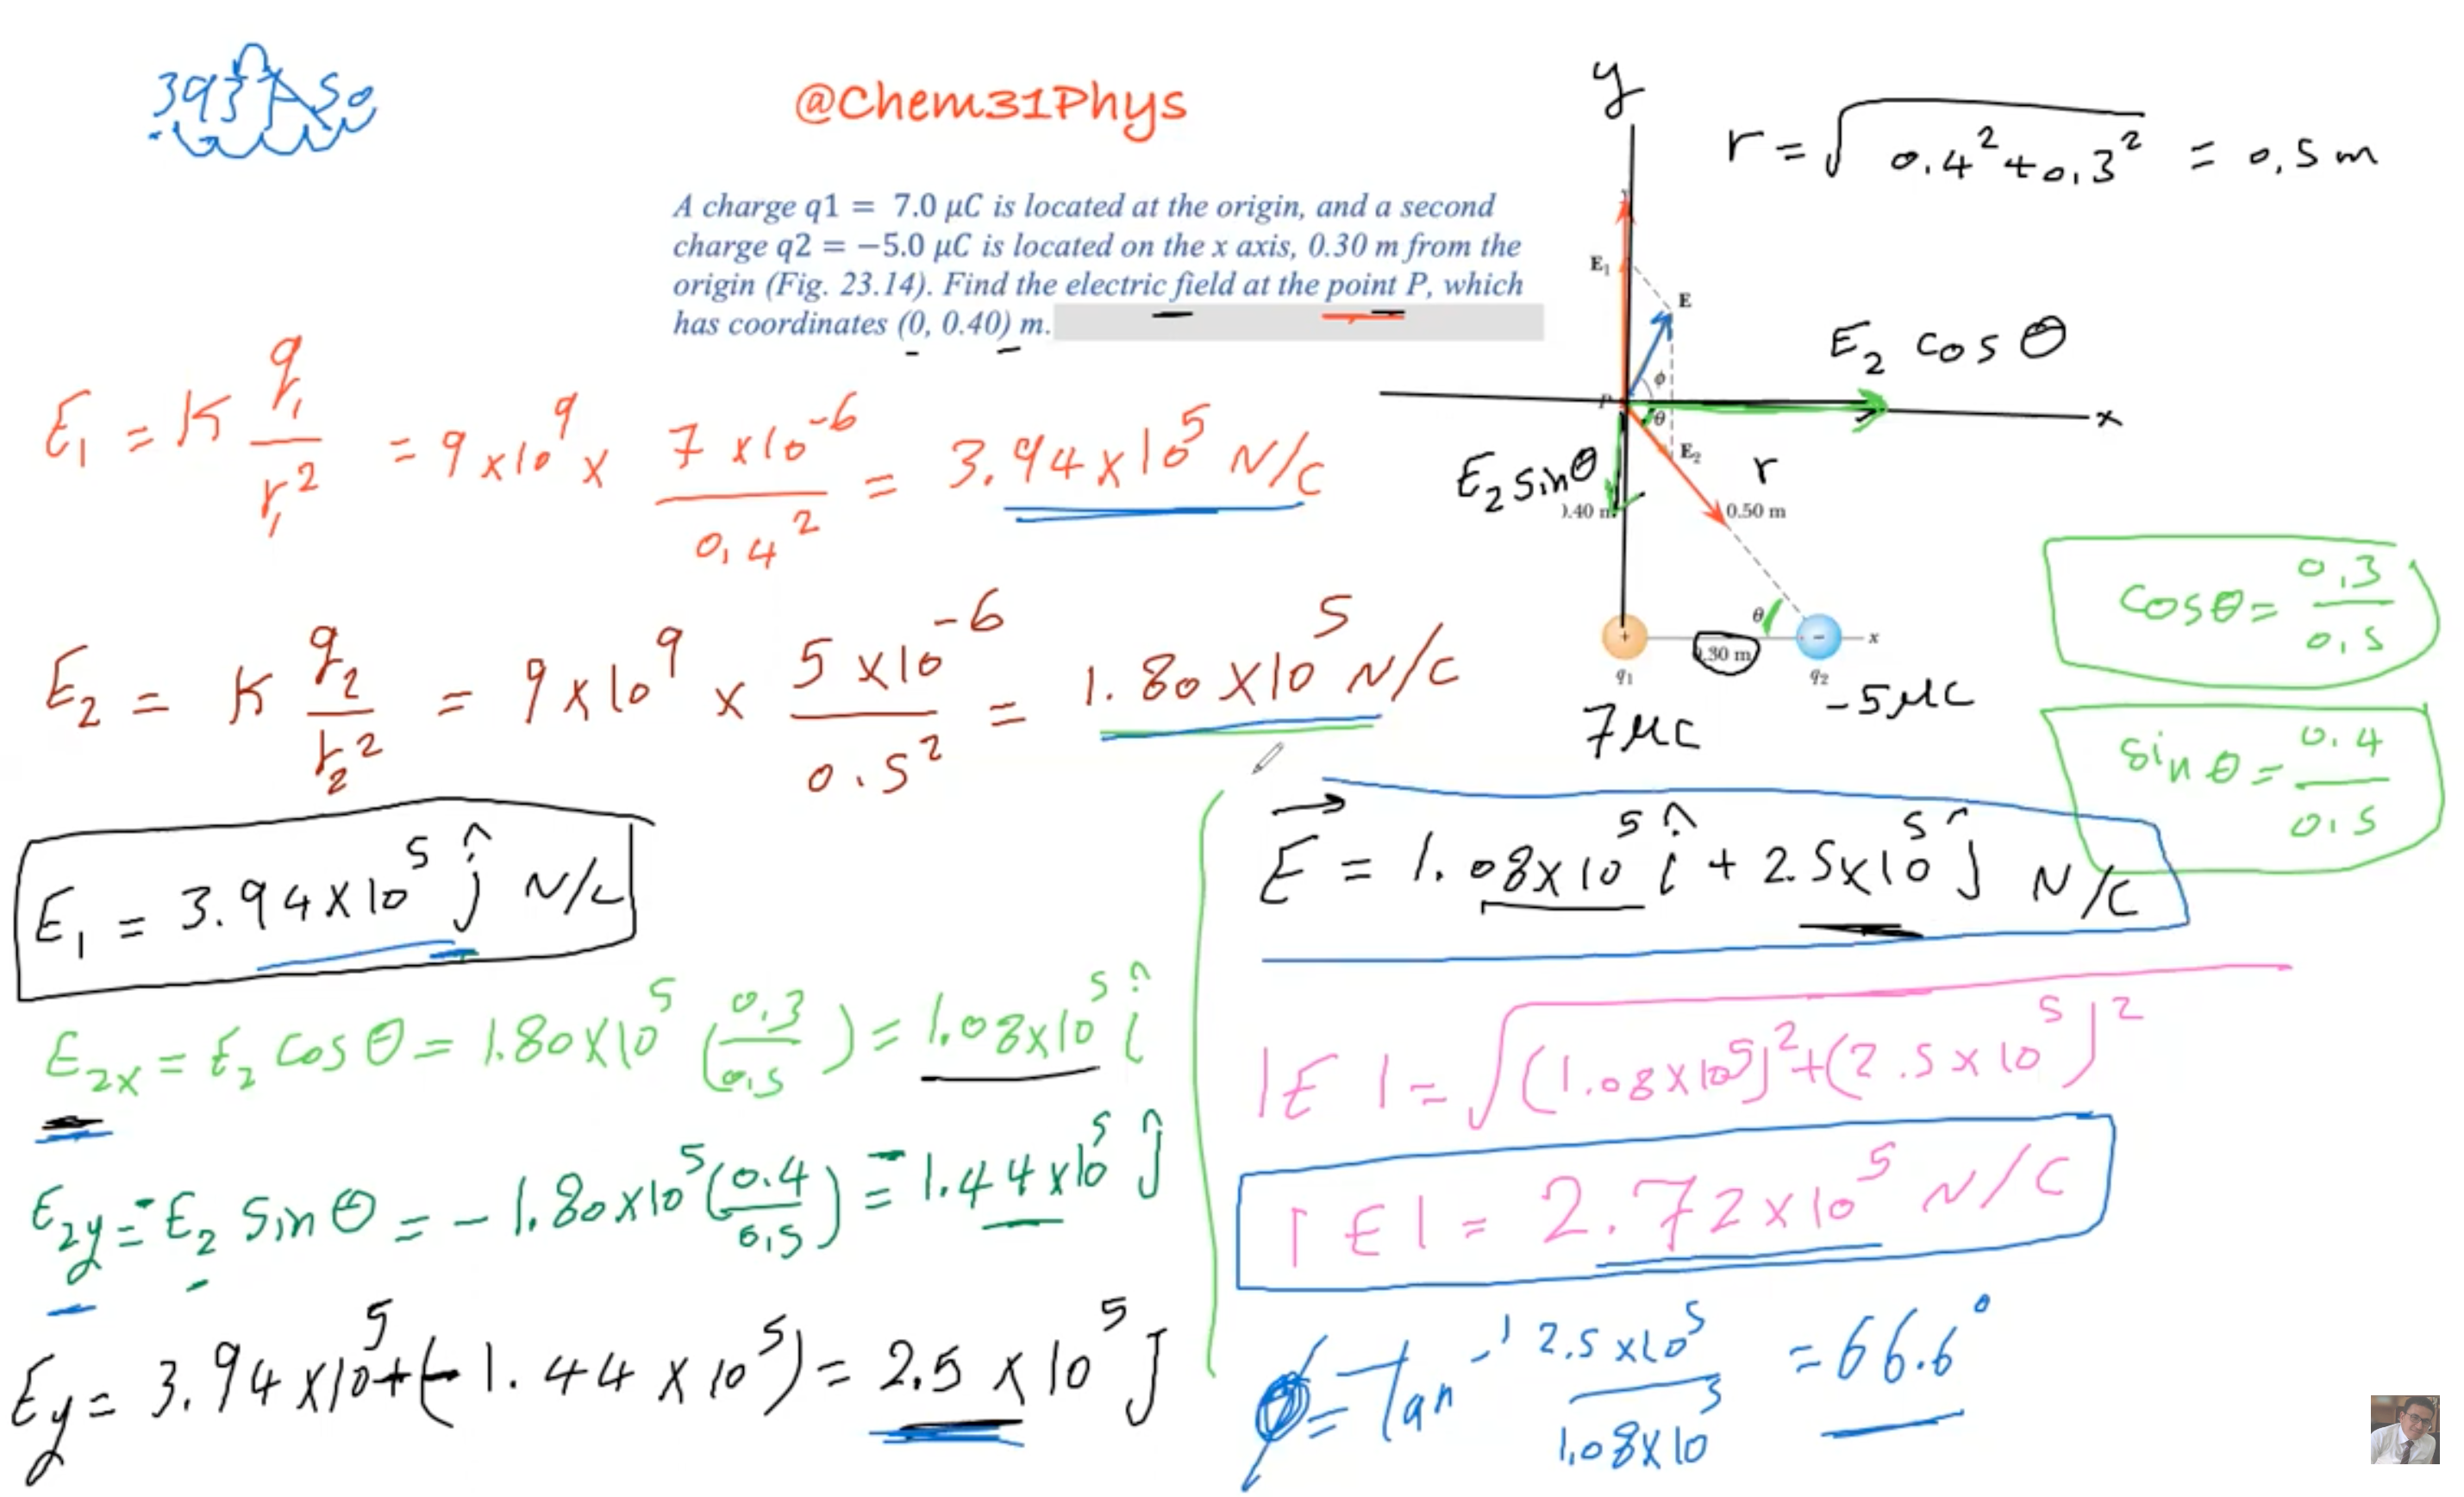 393750
@Chem31Phys
A charge q1 = 7.0 μC is located at the origin, and a second
charge q2 = −5.0 μC is located on the x axis, 0.30 m from the
origin (Fig. 23.14). Find the electric field at the point P, which
has coordinates (0, 0.40) m.
y
r = √(0.4² + 0.3²) = 0.5 m
E₁
E
E₂ cos θ
ϕ
P
θ
x
E₂
r
E₂ sinθ
.40 m
0.50 m
θ
+
−
x
.30 m
q₁
q₂
7 μC
-5 μC
cosθ = 0.3/0.5
sin θ = 0.4/0.5
E₁ = K q₁/r₁² = 9×10⁹ × 7×10⁻⁶/0.4² = 3.94×10⁵ N/C
E₂ = K q₂/r₂² = 9×10⁹ × 5×10⁻⁶/0.5² = 1.80×10⁵ N/C
E₁ = 3.94×10⁵ ĵ N/C
E₂x = E₂ cos θ = 1.80×10⁵ (0.3/0.5) = 1.08×10⁵ î
E₂y = -E₂ sin θ = -1.80×10⁵ (0.4/0.5) = -1.44×10⁵ ĵ
Ey = 3.94×10⁵ + (-1.44×10⁵) = 2.5×10⁵ J
E⃗ = 1.08×10⁵ î + 2.5×10⁵ ĵ N/C
|E| = √((1.08×10⁵)² + (2.5×10⁵)²)
|E| = 2.72×10⁵ N/C
ϕ = Tan⁻¹ 2.5×10⁵/1.08×10⁵ = 66.6°